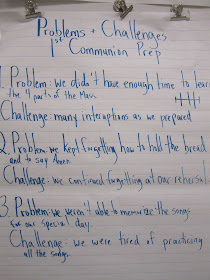 Problems + Challenges
1st Communion Prep
1. Problem: we didn't have enough time to learn
the 4 parts of the Mass
Challenge: many interuptions as we prepared
2. Problem: we kept forgetting how to hold the bread
and to say Amen.
Challenge: we continued forgetting at our rehersal
3. Problem: we weren't able to memorize the songs
for our special day.
Challenge: we were tired of practicing
all the songs.